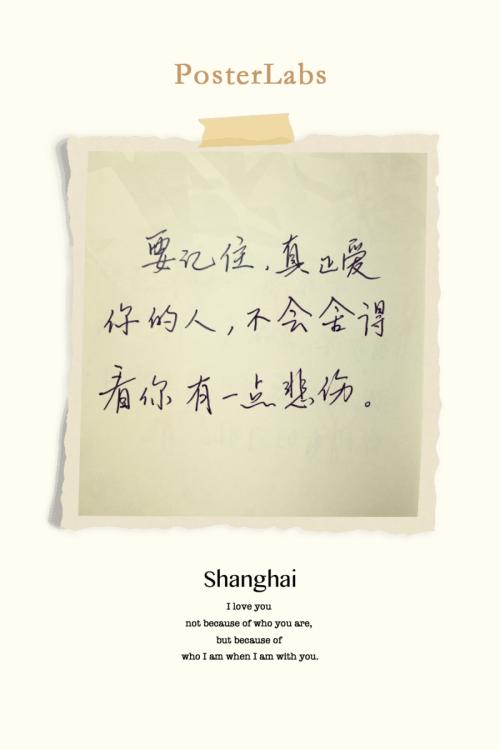 PosterLabs
要记住,真正爱
你的人,不会舍得
看你有一点悲伤。
Shanghai
I love you
not because of who you are,
but because of
who I am when I am with you.